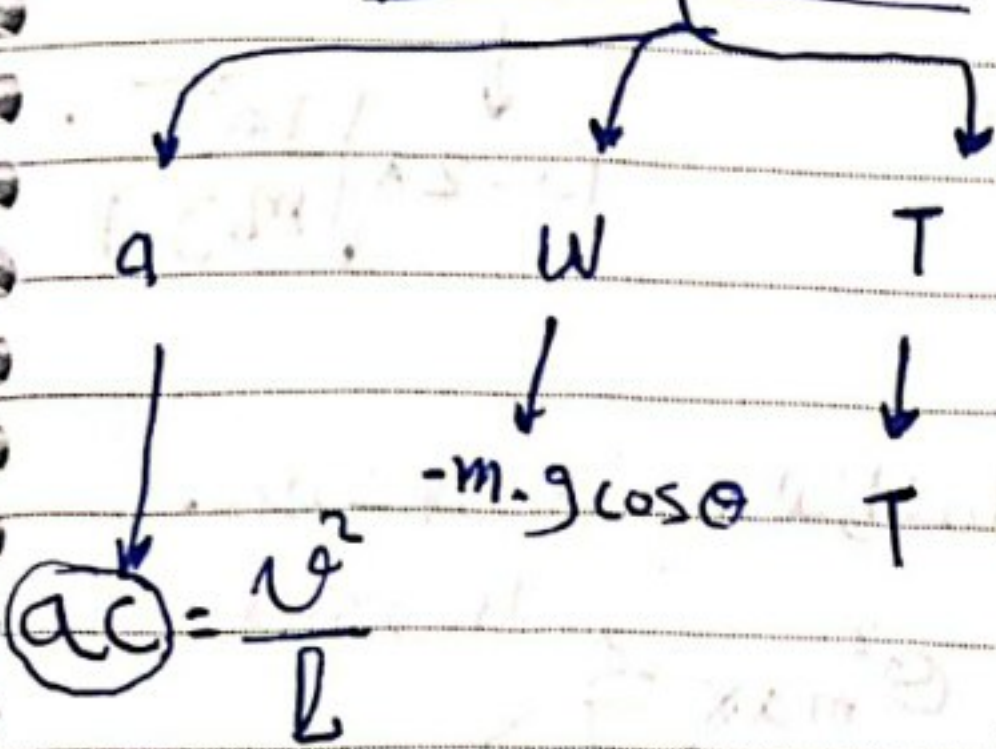 a W T
-m.g cosθ T
ac = v²/l